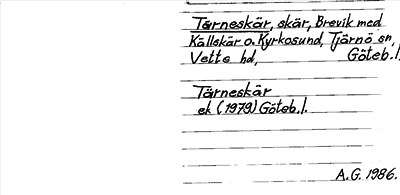 Tarneskär, skär, Brevik med
Källskär o. Kyrkosund, Tjärnö sn,
Vette hd, Göteb.l.
Tärneskär
ek (1979) Göteb.l.
A.G. 1986.